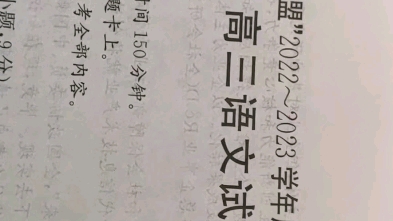 盟”2022～2023学年
高三语文试
时间150分钟。
题卡上。
考全部内容。
小题,9分)